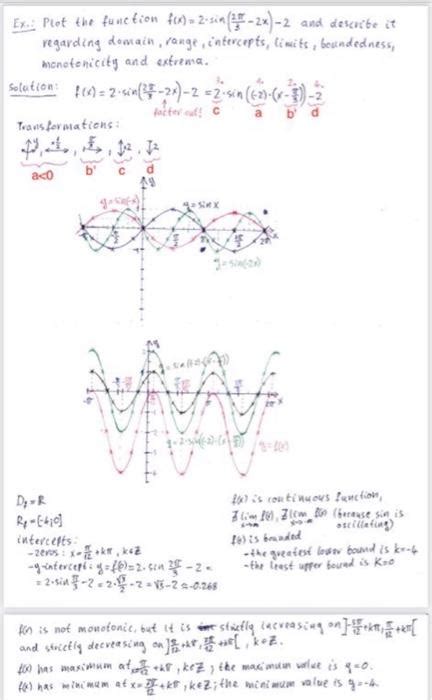 Ex.: Plot the function f(x) = 2·sin(2π/3 - 2x) - 2 and describe it
regarding domain, range, intercepts, limits, boundedness,
monotonicity and extrema.
Solution: f(x) = 2·sin(2π/3 - 2x) - 2 = 2·sin((-2)·(x - π/3)) - 2
factor out! c a b' d
Transformations:
a<0 b' c d
y
y=sin(-x) y=sin x
y=sin(-2x)
y=sin((-2)·(x-π/3))
y=2·sin((-2)·(x-π/3)) y=f(x)
D_f = ℝ
R_f = [-4;0]
intercepts:
-zeros: x = π/12 + kπ, k∈Z
-y-intercept: y = f(0) = 2·sin 2π/3 - 2 =
= 2·sin π/3 - 2 = 2·√3/2 - 2 = √3 - 2 ≈ -0.268
f(x) is continuous function,
∄ lim f(x), ∄ lim f(x) (because sin is
oscillating)
f(x) is bounded
-the greatest lower bound is k=-4
-the least upper bound is K=0
f(x) is not monotonic, but it is strictly increasing on ]-5π/12+kπ, π/12+kπ[
and strictly decreasing on ]π/12+kπ, 7π/12+kπ[, k∈Z.
f(x) has maximum at x=π/12+kπ, k∈Z; the maximum value is y=0.
f(x) has minimum at x=7π/12+kπ, k∈Z; the minimum value is y=-4.